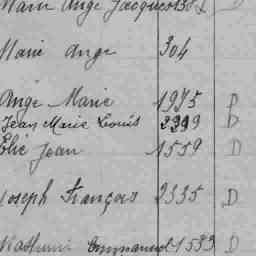 Marie Ange Jacques
Marie Ange 304
Ange Marie 1975 D
Jean Marie Louis 2999 D
Elie Jean 1559 D
Joseph François 2335 D
Mathurin Emmanuel 1533 D